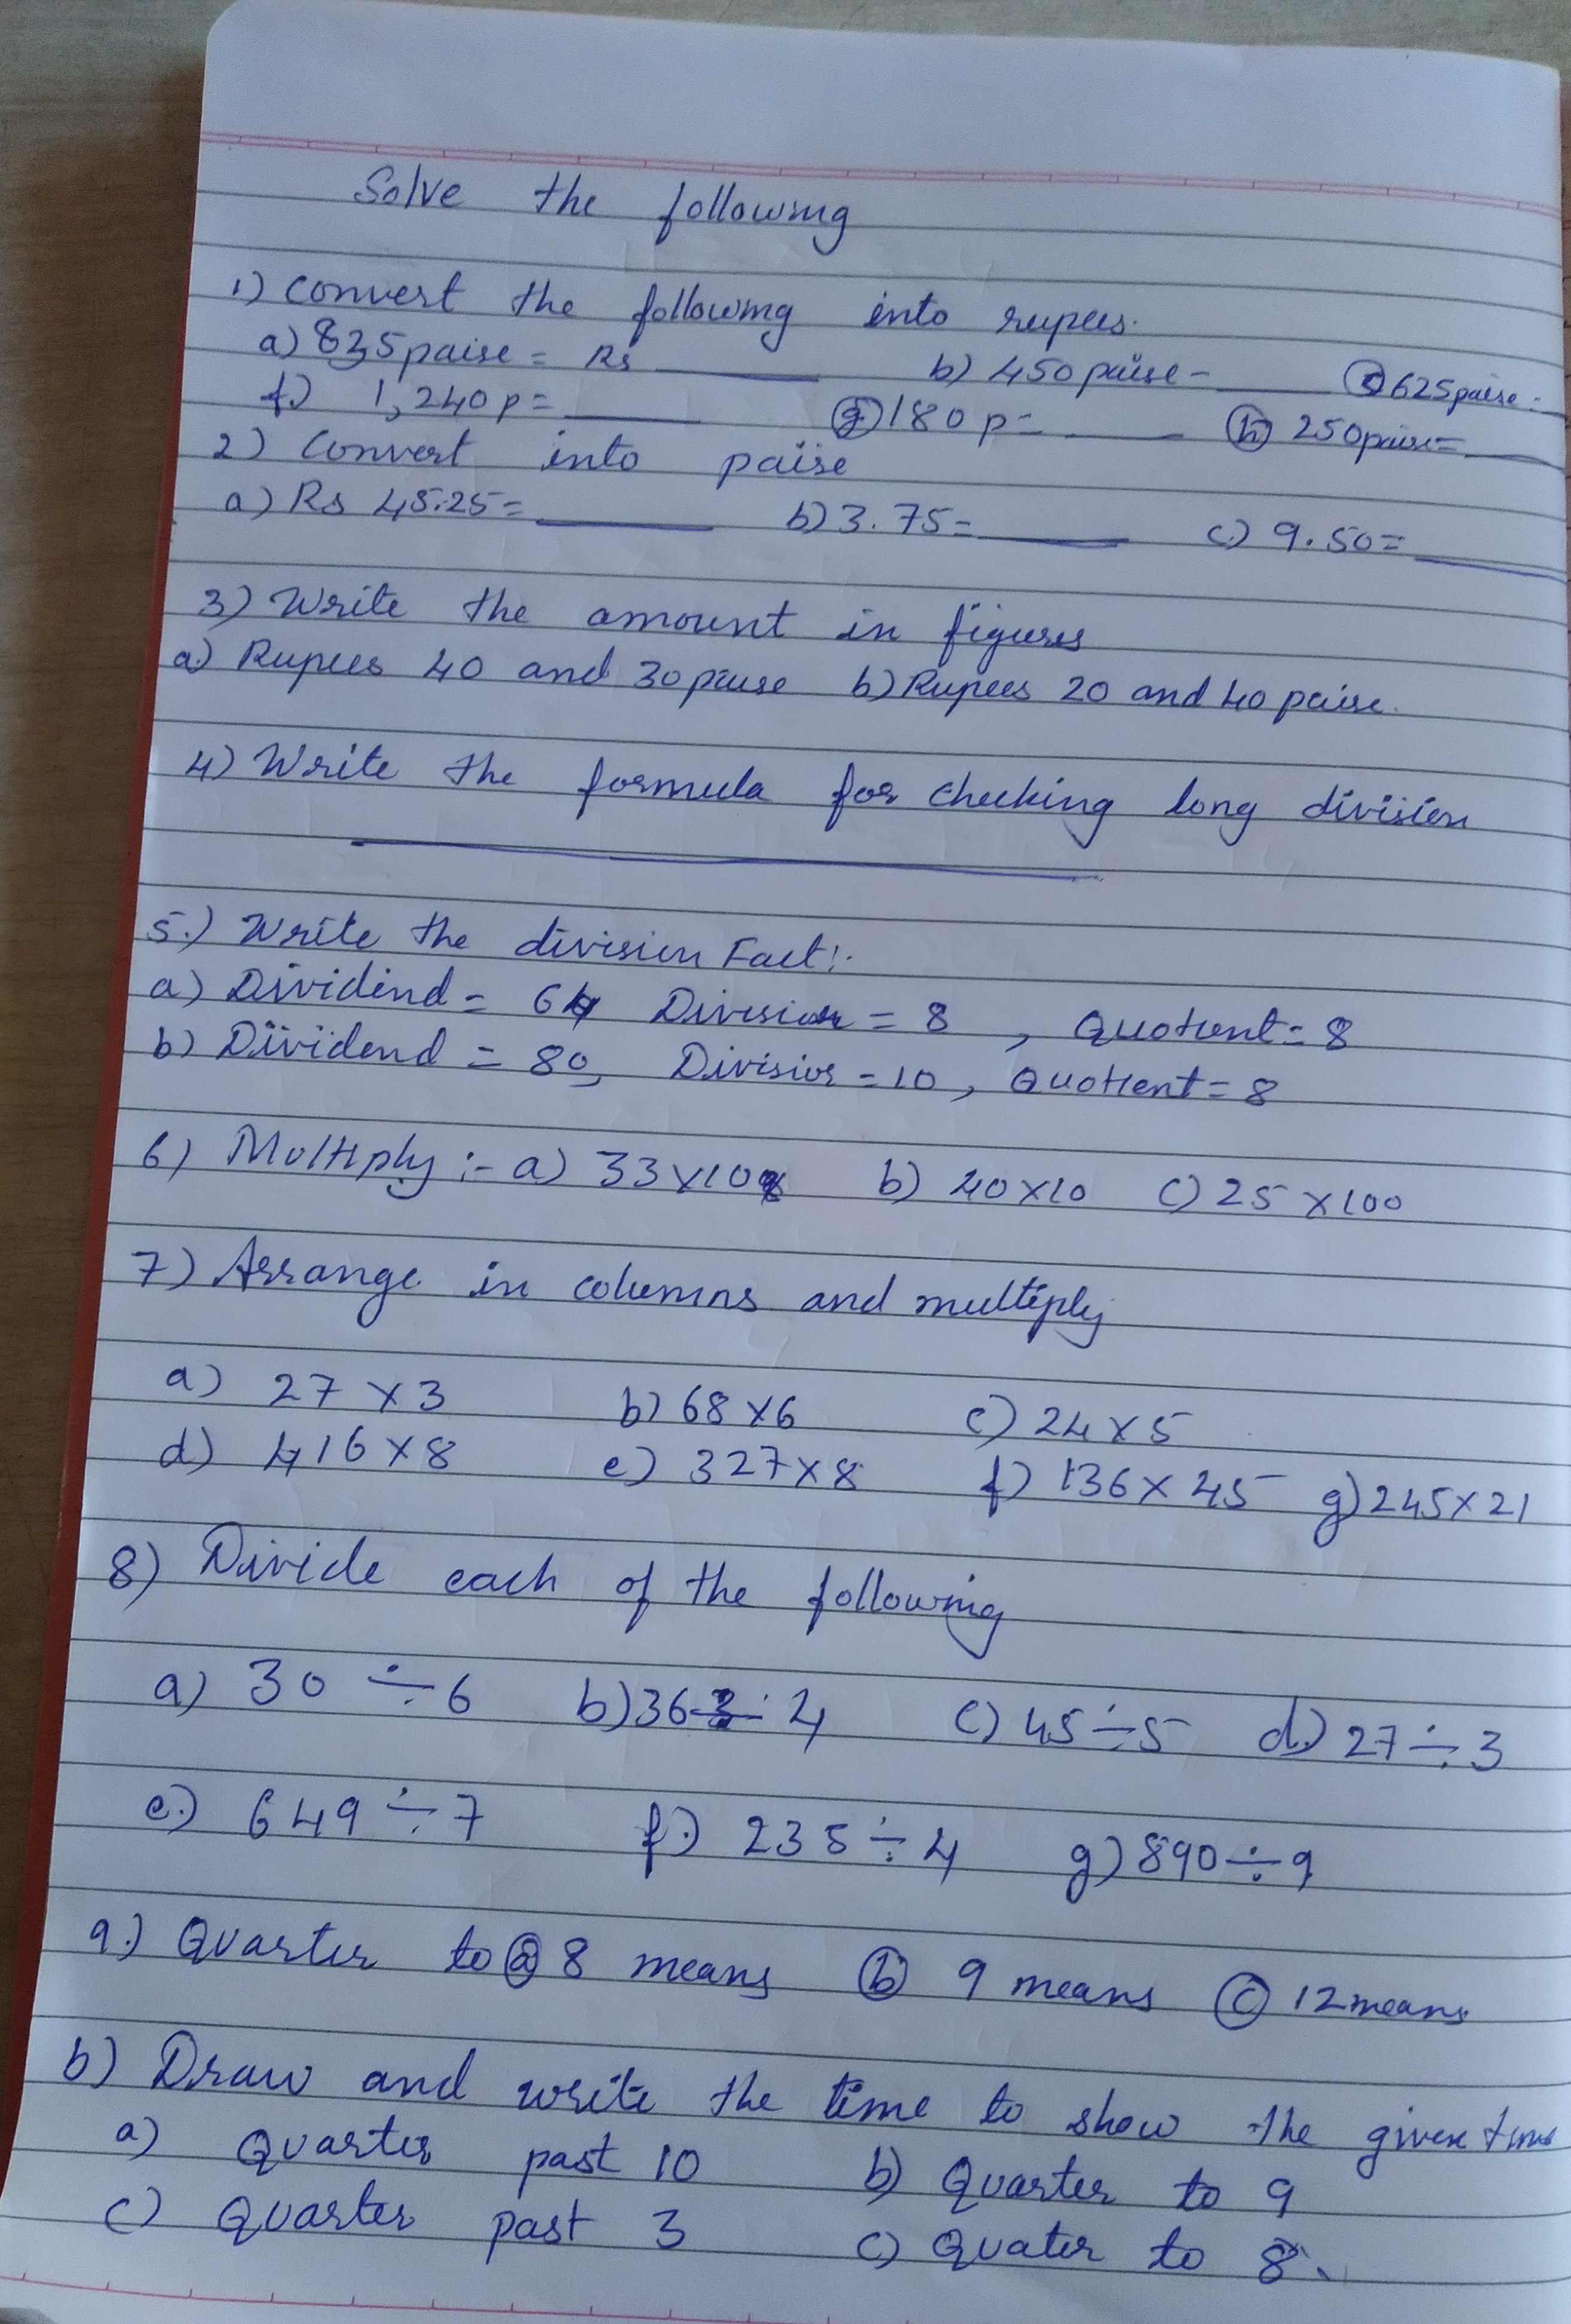 Solve the following
1) Convert the following into rupees.
a) 835 paise = Rs ______ b) 450 paise - ______ 625 paise =
f) 1,240 p = ______ g) 180 p = ______ h) 250 paise = ______
2) Convert into paise
a) Rs 45.25 = ______ b) 3.75 = ______ c) 9.50 = ______
3) Write the amount in figures
a) Rupees 40 and 30 paise b) Rupees 20 and 40 paise.
4) Write the formula for checking long division
5.) Write the division Fact:-
a) Dividend = 64 Division = 8 , Quotient = 8
b) Dividend = 80, Divisior = 10, Quotient = 8
6) Multiply :- a) 33 x 10 b) 40 x 10 c) 25 x 100
7) Arrange in columns and multiply
a) 27 x 3 b) 68 x 6 c) 24 x 5
d) 416 x 8 e) 327 x 8 f) 136 x 45 g) 245 x 21
8) Divide each of the following
a) 30 ÷ 6 b) 36 ÷ 4 c) 45 ÷ 5 d.) 27 ÷ 3
e.) 649 ÷ 7 f.) 235 ÷ 4 g) 890 ÷ 9
9.) Quarter to (a) 8 means (b) 9 means (c) 12 means
b) Draw and write the time to show the given time
a) Quarter past 10 b) Quarter to 9
c) Quarter past 3 c) Quater to 8.